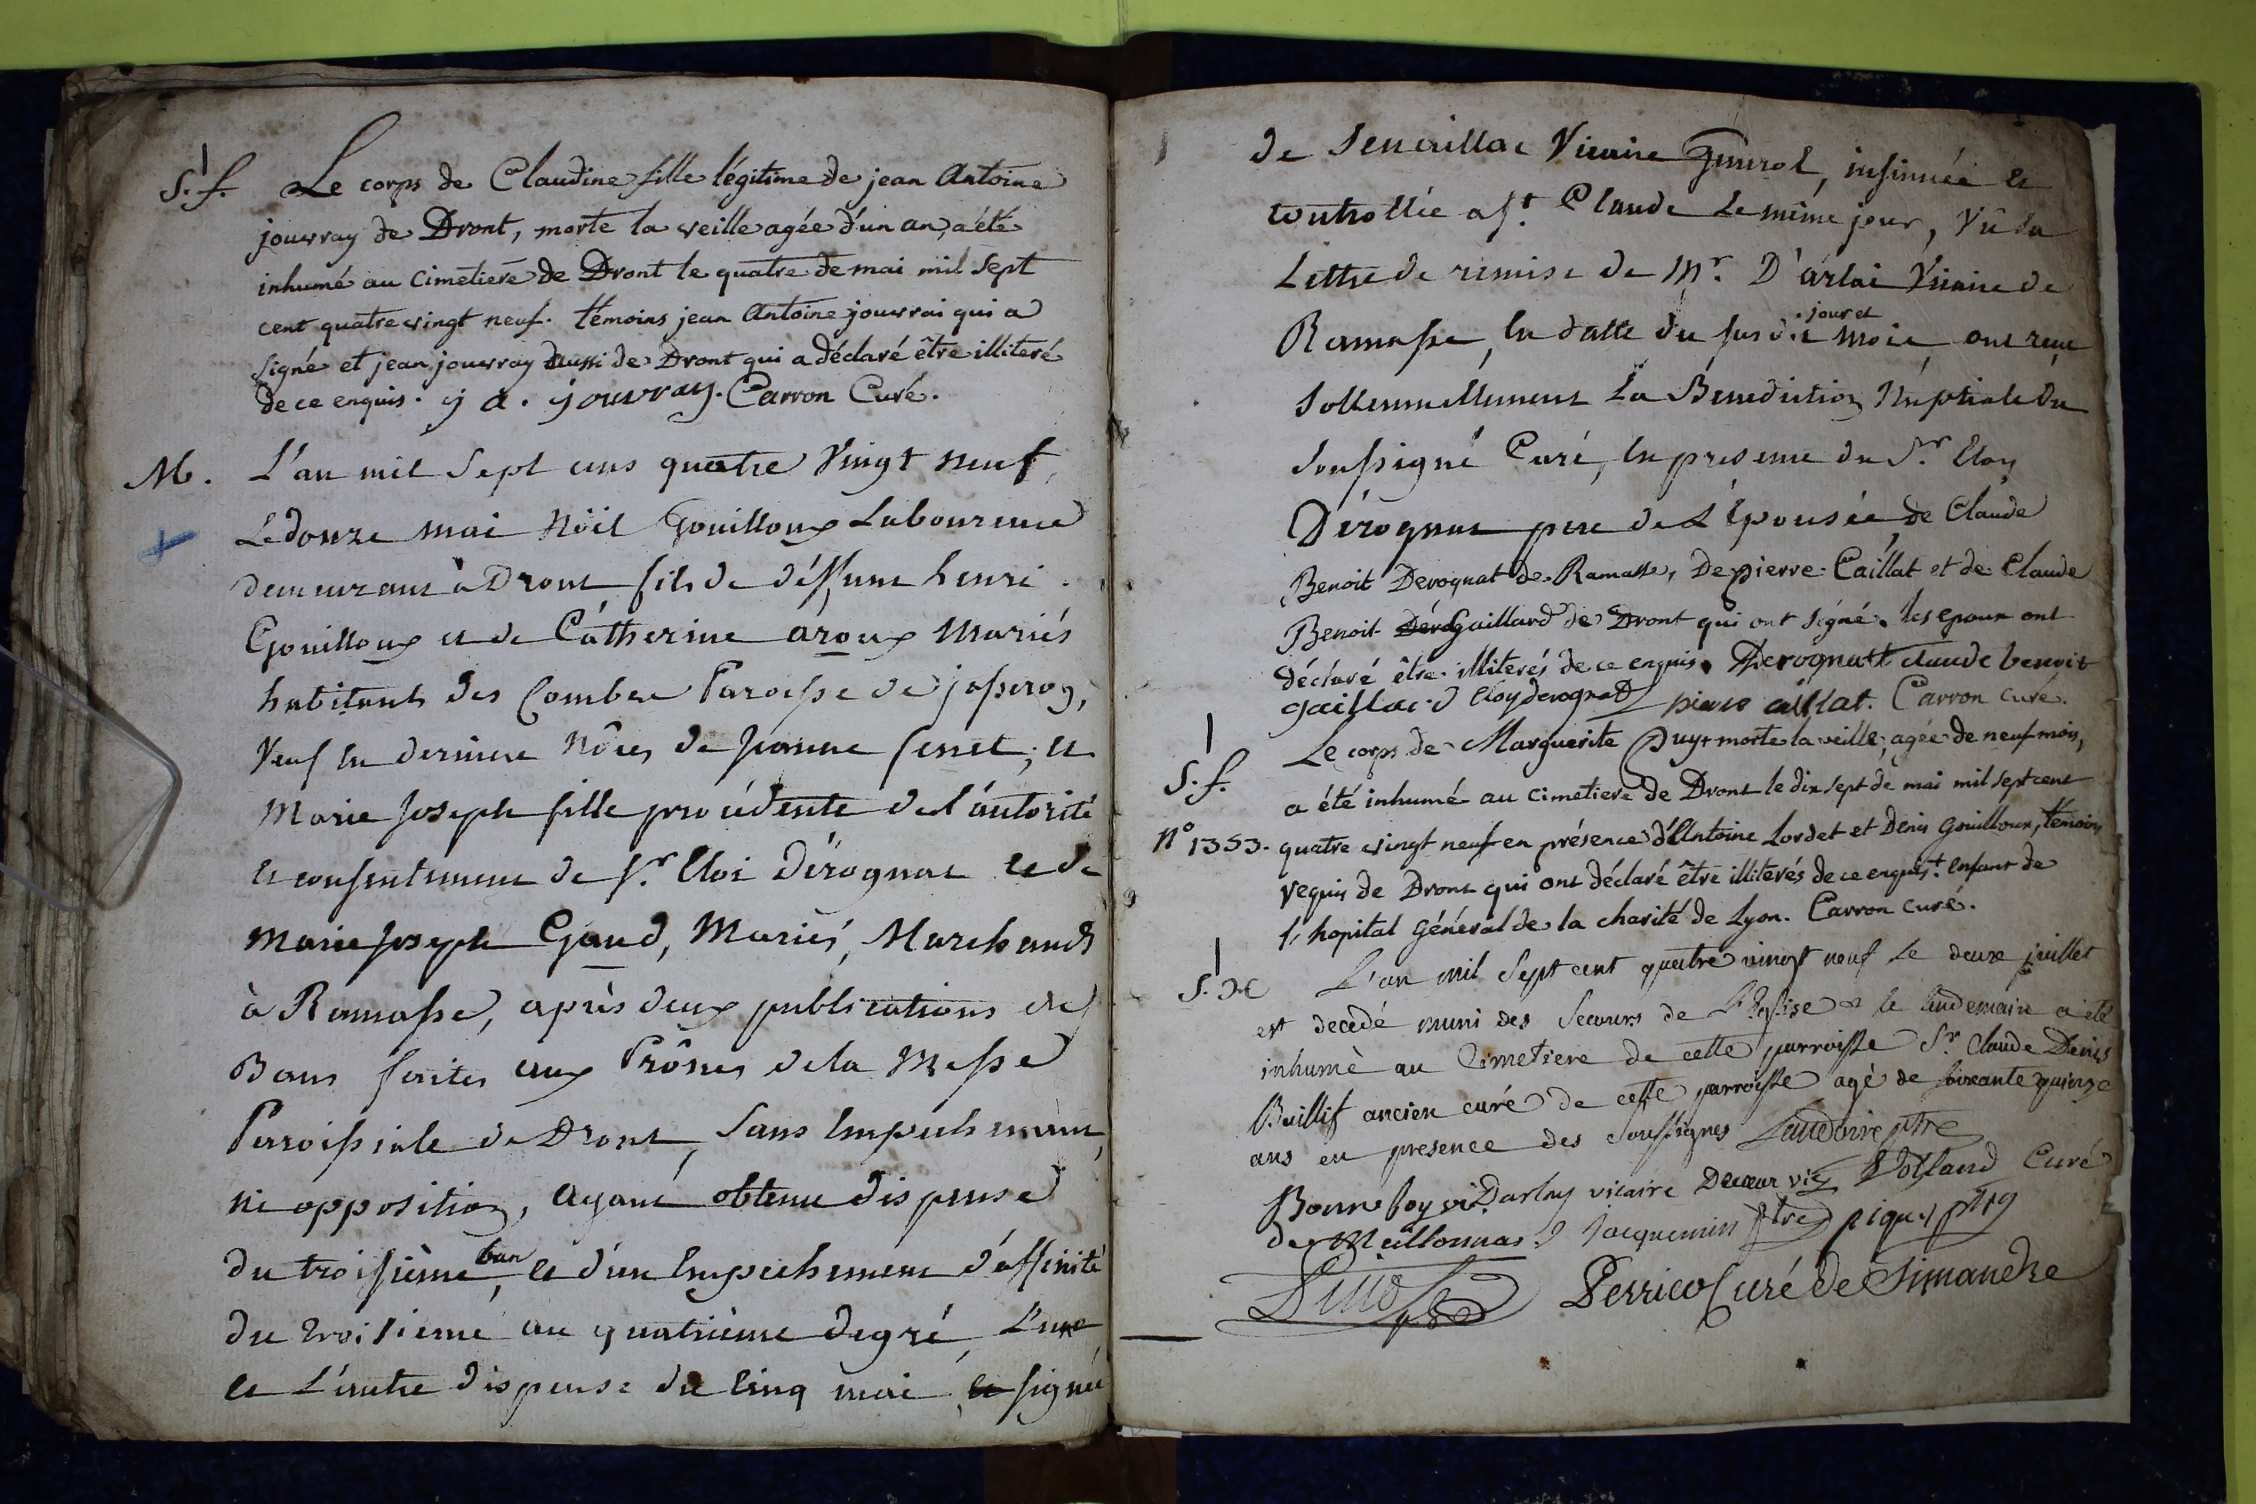 S.f. Le corps de Claudine fille légitime de jean Antoine
jouvray de Dront, morte la veille agée d'un an, a été
inhumé au cimetiere de Dront le quatre de mai mil sept
cent quatre vingt neuf. témoins jean Antoine jouvrai qui a
signé et jean jouvray aussi de Dront qui a déclaré être illiteré
de ce enquis. j a. jouvray. Carron Curé.
M. L'an mil Sept cens quatre Vingt neuf,
Le douze mai Nöel Gouilloux Laboureur
demeurant à Dront fils de déffunt henri
Gouilloux et de Cátherine aroux Mariés
habitants des Combes Paroisse de jasseron,
Veuf en derniere Nôces de Jeanne ferret; et
Marie Joseph fille procédente de l'autorité
et consentement de Sr. Eloi Dérognat et de
Marie Joseph Gaud, Mariés, Marchands
à Ramasse, après deux publications de
Bans faites aux Prônes de la Messe
Parroissiale de Dront, Sans Empechement,
ni opposition, ayant obtenu dispense
du troisième ban, et d'un Empechement d'affinité
du troisieme au quatrieme degré, L'une
et L'autre dispense du cinq mai, et signée
de Senaillac Vicaire Général, insinuée et
controllée a St. Claude Le même jour, Vû la
Lettre de remise de Mr. D'arlai Vicaire de
Ramasse, en datte du susdit jour et mois, ont reçu
Sollennellement La Bénédiction Nuptiale du
Soussigné Curé, en presence du Sr. Eloy
Dérognat pere de L'épousée, de Claude
Benoit Derognat de Ramasse, De pierre Caillat et de Claude
Benoit Déro Gaillard de Dront qui ont signé. les epoux ont
déclaré être illiterés de ce enquis. Derognatt claude benoit
gaillard Eloy derognat piere caillat. Carron curé.
S.f. Le corps de Marguerite Puy morte la veille, agée de neuf mois,
a été inhumé au cimetiere de Dront le dix sept de mai mil sept cent
N° 1353. quatre vingt neuf en présence d'Antoine Lordet et Denis Gouilloux, témoins
requis de Dront qui ont déclaré être illiterés de ce enquist. enfant de
l'hopital Général de la charité de Lyon. Carron curé.
S. L'an mil Sept cent quatre vingt neuf Le deux juillet
est decedé muni des Secours de L'Eglise & le lendemain a été
inhumé au Cimetiere de cette parroisse Sr. Claude Denis
Baillif ancien curé de cette parroisse agé de soixante quinze
ans en presence des soussignes Laudoire ptre
Bonnefoy vi. Darlay vicaire Decoeur vic Volland Curé
de Meillonnas Jacquemin ptre piquet ptre
Perrico Curé de Simandre